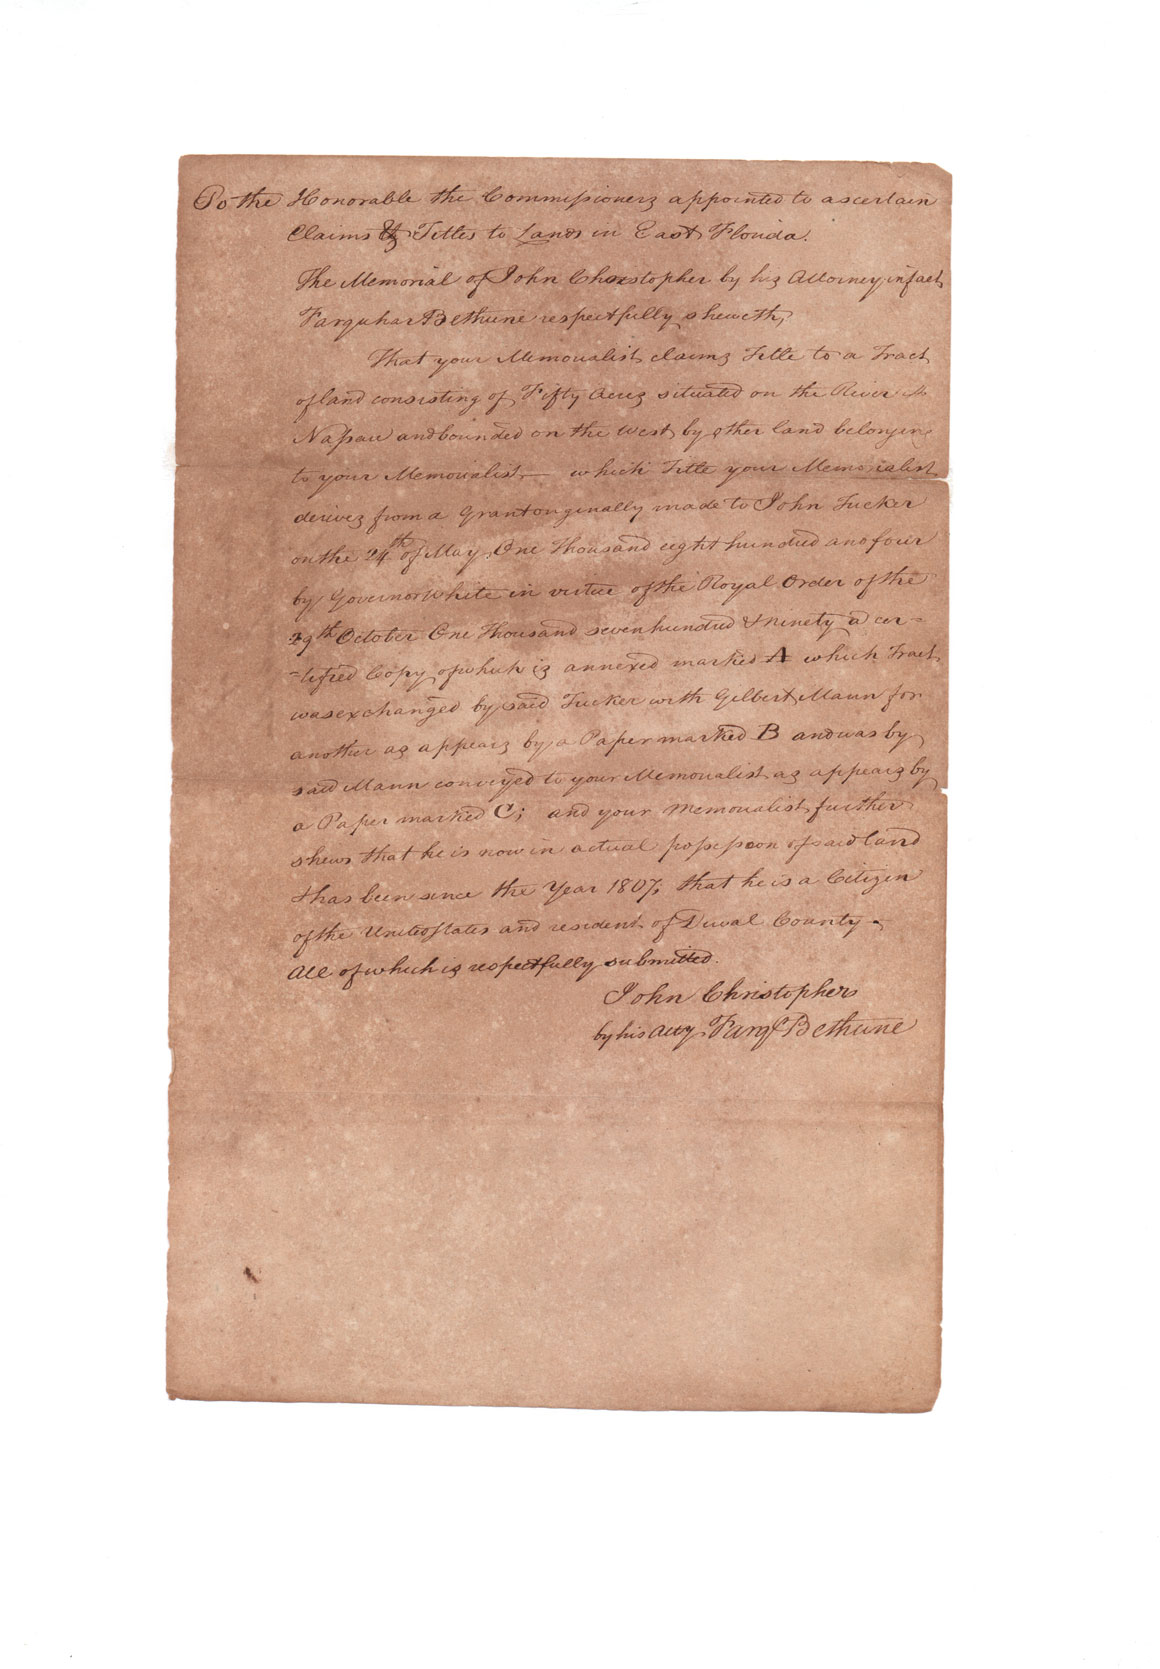 To the Honorable the Commissioners appointed to ascertain
Claims & Titles to Lands in East Florida.
The Memorial of John Christopher by his Attorney in fact
Farquhar Bethune respectfully sheweth,
That your Memorialist claims Title to a Tract
of land consisting of Fifty Acres situated on the River
Nassau and bounded on the West by other land belonging
to your Memorialist — which Title your Memorialist
derives from a Grant originally made to John Tucker
on the 24th of May, One Thousand eight hundred and four
by Governor White in virtue of the Royal Order of the
29th October One Thousand seven hundred & ninety a cer=
=tified Copy of which is annexed marked A which Tract
was exchanged by said Tucker with Gilbert Maun for
another as appears by a Paper marked B and was by
said Maun conveyed to your Memorialist as appears by
a Paper marked C; and your Memorialist further
shews that he is now in actual possession of said land
& has been since the Year 1807, that he is a Citizen
of the United States and resident of Duval County.
All of which is respectfully submitted.
John Christopher
by his Atty Farqr Bethune